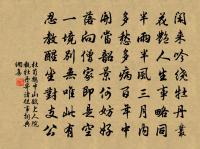 閑來吟繞牡丹叢
花艷人生事略同
半雨半風三月內
多愁多病百年中
開當韶景何妨好
落向僧家即是空
一境別無唯此有
忍教醒坐對支公
杜荀鶴中山臨上人院
觀牡丹寄諸從事詞典
網集